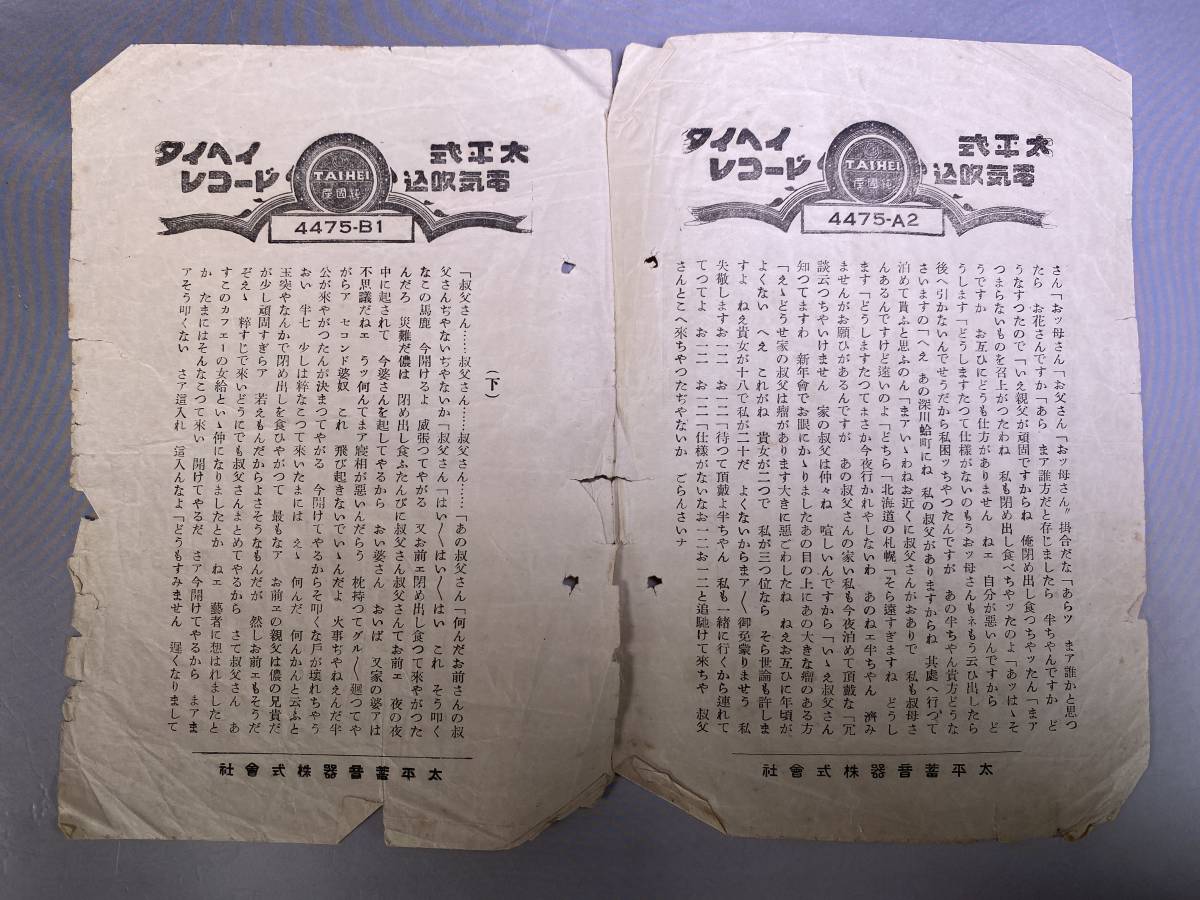 太平式
電気吹込
タイヘイ
レコード
TAIHEI
純國産
4475-A2
さん「おッ母さん「お父さん「おッ母さん〃掛合だな「あらッ まア誰かと思つ
たら お花さんですか「あら まア誰方だと存じましたら 半ちやんですか ど
うなすつたので「いえ親父が頑固ですからね 俺閉め出し食つちやッたん「まア
つまらないものを召上がつたわね 私も閉め出し食べちやッたのよ「あッはゝそ
うですか お互ひにどうも仕方がありません ねエ 自分が悪いんですから ど
うします「どうしますたつて仕様がないのもうおッ母さんもネもう云ひ出したら
後へ引かないんでせうだから私困ッちやつたんですが あの半ちやん貴方どうな
さいますの「へえ あの深川蛤町にね 私の叔父がありますからね 其處へ行つて
泊めて貰ふと思ふのん「まアいゝわねお近くに叔父さんがおありで 私も叔母さ
んあるんですけど遠いのよ「どちら「北海道の札幌「そら遠すぎますね どうし
ます「どうしますたつてまさか今夜行かれやしないわ あのねエ半ちやん 濟み
ませんがお願ひがあるんですが あの叔父さんの家い私も今夜泊めて頂戴な「冗
談云つちやいけません 家の叔父は仲々ね 喧しいんですから「いゝえ叔父さん
知つてますわ 新年會でお眼にかゝりましたあの目の上にあの大きな瘤のある方
「えゝどうせ家の叔父は瘤があります大きに悪ごわしたね ねえお互ひに年頃が、
よくない へえ これがね 貴女が二つで 私が三つ位なら そら世論も許しま
すよ ねえ貴女が十八で私が二十だ よくないからまア〱御免蒙りませう 私
失敬しますお一二 お一二「待つて頂戴よ半ちやん 私も一緒に行くから連れて
てつてよ お一二 お一二「仕様がないなお一二お一二と追馳けて來ちや 叔父
さんとこへ來ちやつたぢやないか ごらんさいナ
太平蓄音器株式會社
太平式
電気吹込
タイヘイ
レコード
TAIHEI
純國産
4475-B1
(下)
「叔父さん……叔父さん……叔父さん……「あの叔父さん「何んだお前さんの叔
父さんぢやないぢやないか「叔父さん「はい〱はい〱はい これ そう叩く
なこの馬鹿 今開けるよ 威張つてやがる 又お前ェ閉め出し食つて來やがつた
んだろ 災難だ儂は 閉め出し食ふたんびに叔父さん叔父さんてお前ェ 夜の夜
中に起されて 今婆さんを起してやるから おい婆さん おいば 又家の婆アは
不思議だねェ うッ何んてまア寝相が悪いんだらう 枕持つてグル〱廻つてや
がらア セコンド婆奴 これ 飛び起きないでいゝんだよ 火事ぢやねえんだ半
公が來やがつたんが決まつてやがる 今開けてやるからそ叩くな戸が壊れちやう
おい 半七 少しは粋なこつて來いたまには えゝ 何んだ 何んかんと云ふと
玉突やなんかで閉め出しを食ひやがつて 最もなア お前ヱの親父は儂の兄貴だ
が少し頑固すぎらア 若えもんだからよさそうなもんだが 然しお前ェもそうだ
ぞえゝ 粹すじで來いどうにでも叔父さんまとめてやるから さて叔父さん あ
すこのカフェーの女給といゝ仲になりましたとか ねェ 藝者に想はれましたと
か たまにはそんなこつて來い 開けてやるだ さア今開けてやるから まアま
アそう叩くない さア這入れ 這入んなよ「どうもすみません 遲くなりまして
太平蓄音器株式會社